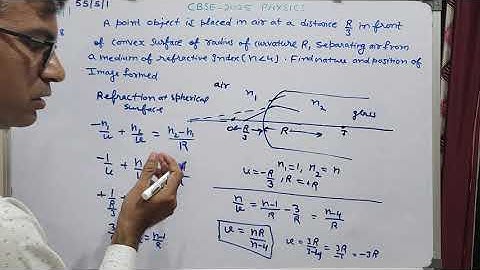 55/5/1
CBSE-2025 PHYSICS
A point object is placed in air at a distance R/3 in front
of convex surface of radius of curvature R, separating air from
a medium of refractive Index (n<4). Find nature and position of
Image formed
air
Refraction at spherical
surface
n₁
n₂
glass
-n₁/u + n₂/v = n₂-n₁/R
O
R/3
R
n₁=1, n₂=n
u=-R/3, R=+R
-1/u +
n/v = n-1/R - 3/R = n-4/R
v = nR/n-4
= n-1/R